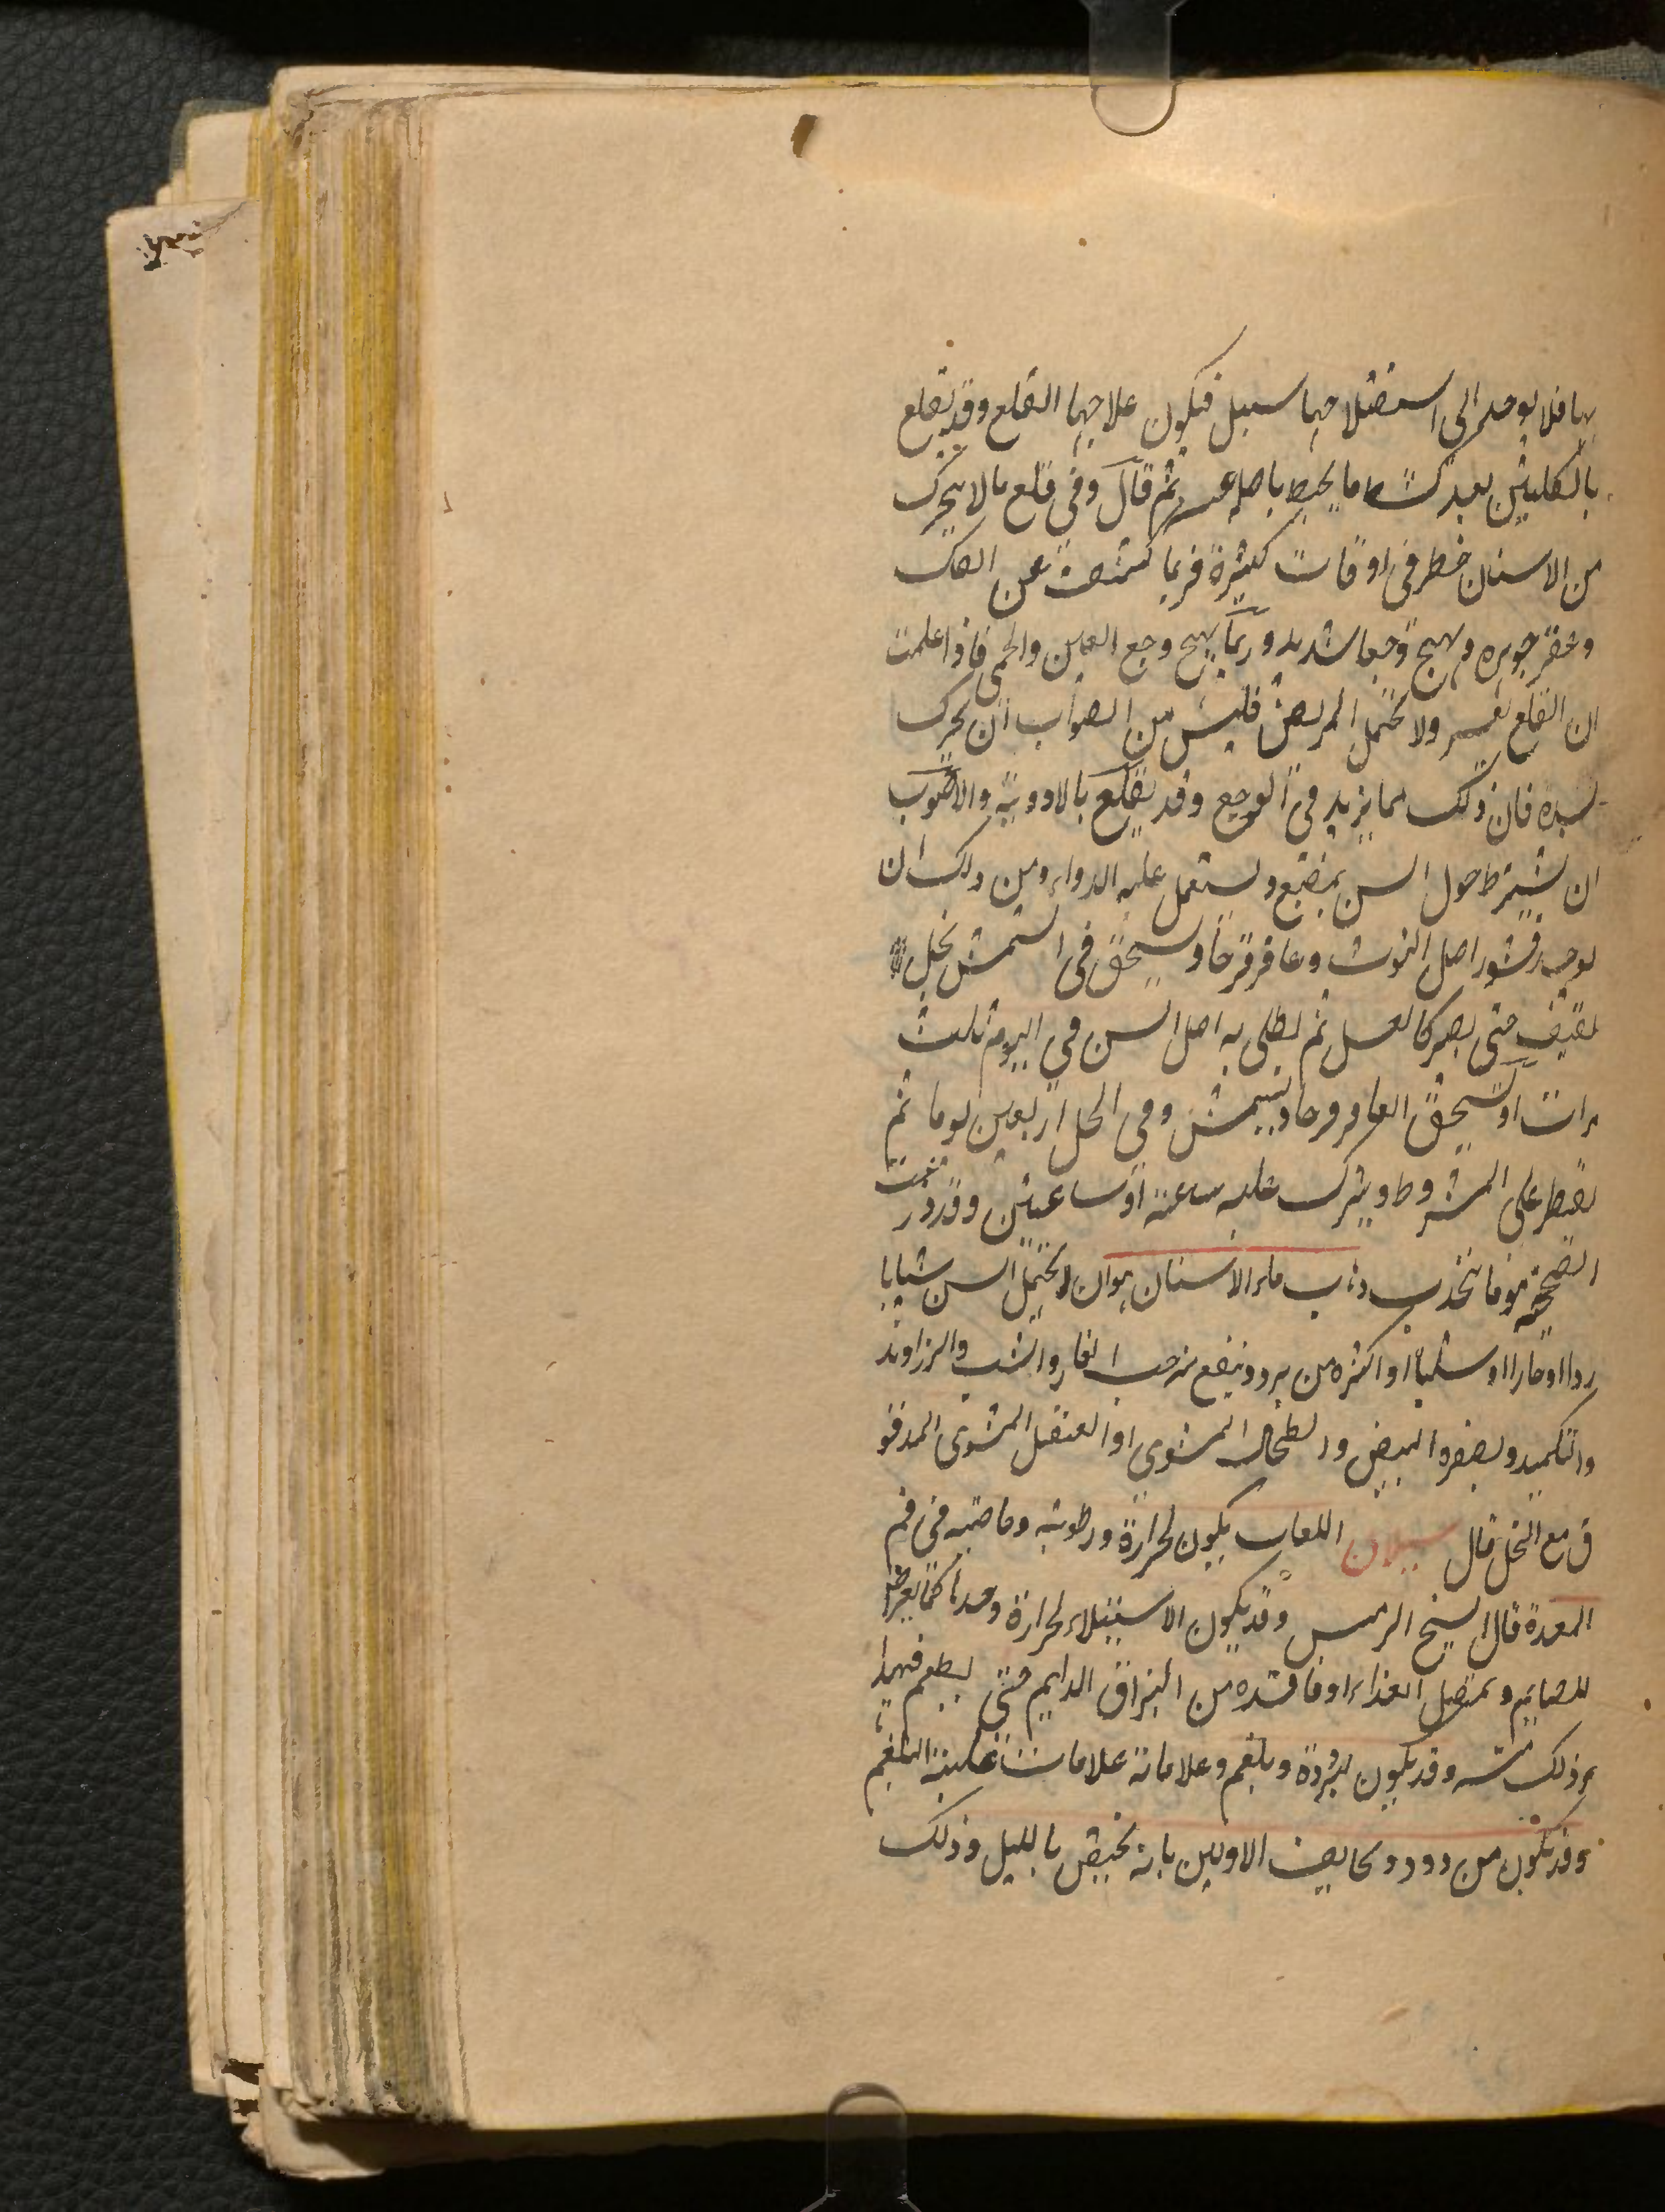 بها فلا يوجد الى استصلاحها سبيل فيكون علاجها القلع وقد يقلع
بالكلبتين بعد كشط ما يحيط باصله ثم قال وفى قلع ما لا يتحرك
من الاسنان خطر فى اوقات كثيرة فربما كشف عن الفك
وعفن جوهره وهيج وجعا شديد وربما يهيج وجع العين والحمى فاذا علمت
ان القلع يعسر ولا يحتمل المريض فليس من الصواب ان يحرك
بشده فان ذلك مما يزيد فى الوجع وقد يقلع بالادويه والاصوب
ان يشترط حول السن بمبضع ويستعمل عليه الدواء ومن ذلك ان
يوخذ قشور اصل التوث وعاقرقرحا ويسحق فى الشمس بخل
ثقيف حتى يصير كالعسل ثم يطلى به اصل السن في اليوم ثلث
مرات او يسحق العاقرقرحا ويشمش وفى الخل اربعين يوما ثم
يقطر على المشروط ويترك عليه ساعة او ساعتين وقد درعت
الصحيحة موما ثم يجذب ذهاب ماء الاسنان هو ان لا يحتمل السن شيئا با
ردا او حارا او صلبا او اكثره من برد وينفع منه حب الغار والشب والزراوند
والتكميد وبصفره البيض والطحال المشوى او العنصل المشوى المدقو
ق مع الخل قال سيلان اللعاب يكون لحرارة ورطوبه وخاصيه فى فم
المعدة قال الشيخ الرئيس وقد يكون الاستيلاء لحرارة وحدها كما يعرض
للصايم ولمقل الغذاء او فاقده من البزاق الدايم حتى يطعم فيهدا
عن ذلك منه وقد يكون لبرودة وبلغم وعلاماته علامات غلبة البلغم
وقد يكون من دود ويخالف الاولين بانه يختص بالليل وذلك